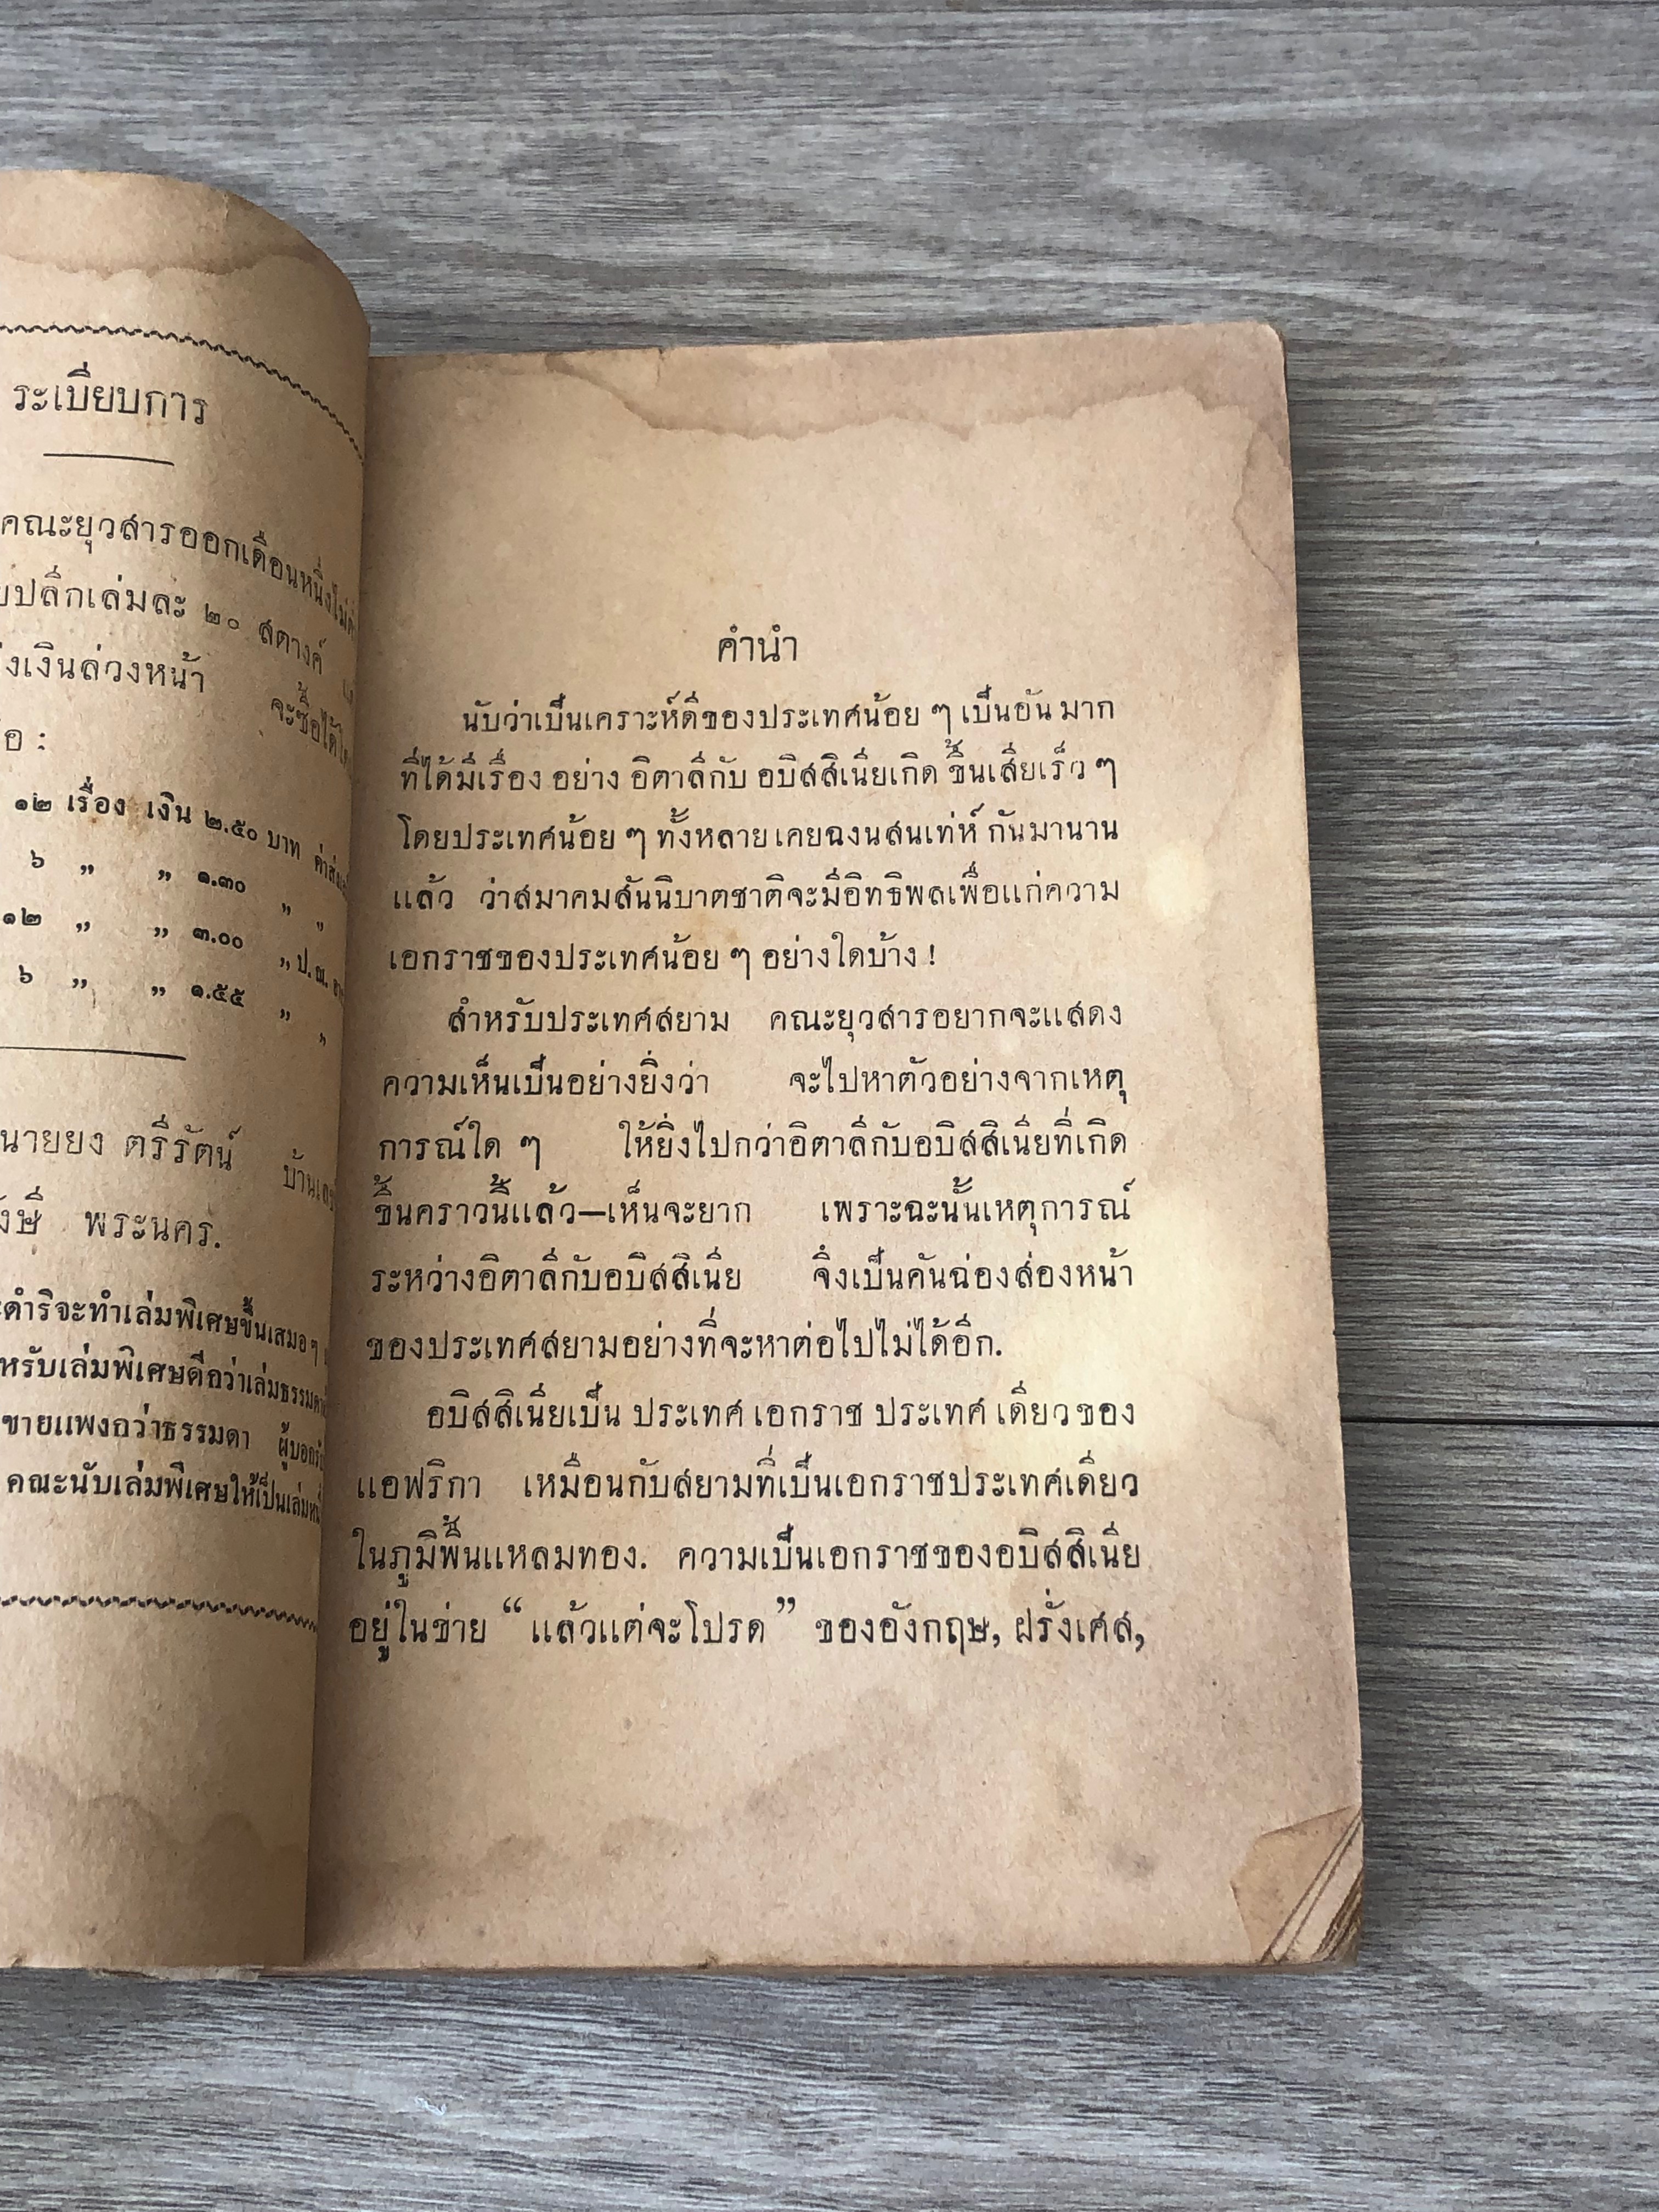 ระเบียบการ
คณะยุวสารออกเดือนหนึ่งไม่
ปลีกเล่มละ ๒๐ สตางค์
เงินล่วงหน้า จะซื้อได้
๑๒ เรื่อง เงิน ๒.๕๐ บาท ค่าส่ง
๖ „ „ ๑.๓๐ „ „
๑๒ „ „ ๓.๐๐ „ ป.ณ.
๖ „ „ ๑.๕๕ „ „
นายยง ตรีรัตน์
พระนคร.
ดำริจะทำเล่มพิเศษขึ้นเสมอๆ
หรับเล่มพิเศษดีกว่าเล่มธรรมดา
ขายแพงกว่าธรรมดา ผู้บอกรับ
คณะนับเล่มพิเศษให้เป็นเล่มหนึ่ง
คำนำ
นับว่าเป็นเคราะห์ดีของประเทศน้อย ๆ เป็นอัน มาก
ที่ได้มีเรื่อง อย่าง อิตาลีกับ อบิสสิเนียเกิด ขึ้นเสียเร็ว ๆ
โดยประเทศน้อย ๆ ทั้งหลาย เคยฉงนสนเท่ห์ กันมานาน
แล้ว ว่าสมาคมสันนิบาตชาติจะมีอิทธิพลเพื่อแก่ความ
เอกราชของประเทศน้อย ๆ อย่างใดบ้าง !
สำหรับประเทศสยาม คณะยุวสารอยากจะแสดง
ความเห็นเป็นอย่างยิ่งว่า จะไปหาตัวอย่างจากเหตุ
การณ์ใด ๆ ให้ยิ่งไปกว่าอิตาลีกับอบิสสิเนียที่เกิด
ขึ้นคราวนี้แล้ว—เห็นจะยาก เพราะฉะนั้นเหตุการณ์
ระหว่างอิตาลีกับอบิสสิเนีย จึงเป็นคันฉ่องส่องหน้า
ของประเทศสยามอย่างที่จะหาต่อไปไม่ได้อีก.
อบิสสิเนียเป็น ประเทศ เอกราช ประเทศ เดียวของ
แอฟริกา เหมือนกับสยามที่เป็นเอกราชประเทศเดียว
ในภูมิพื้นแหลมทอง. ความเป็นเอกราชของอบิสสิเนีย
อยู่ในข่าย “แล้วแต่จะโปรด” ของอังกฤษ, ฝรั่งเศส,